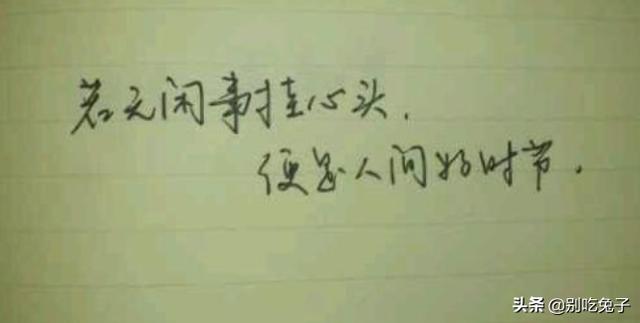 若无闲事挂心头.
便是人间好时节.
头条 @别吃兔子